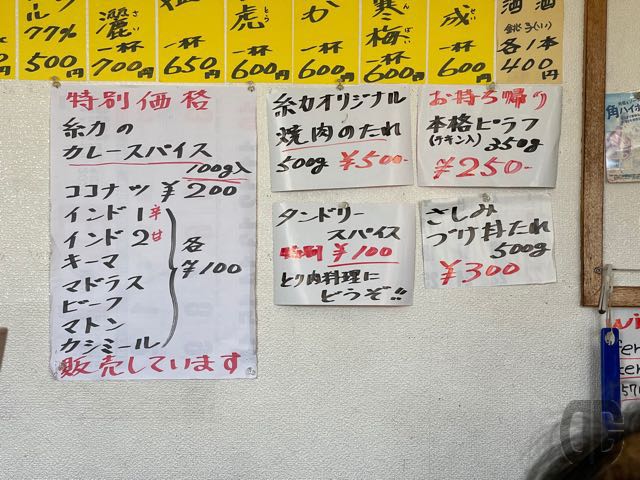 77%
500円
灑
一杯
700円
一杯
650円
虎
とう
一杯
600円
か
一杯
600円
寒梅
ばい
一杯
600円
成
せい
一杯
600円
酒 酒
銚子(い)
各1本
400円
特別価格
糸力の
カレースパイス
100g入
ココナツ ¥200
インド1辛
インド2甘
キーマ
マドラス
ビーフ
マトン
カシミール
各
¥100
販売しています
糸力オリジナル
焼肉のたれ
500g ¥500-
お持ち帰り
本格ピラフ
(チキン入) 350g
¥250-
タンドリー
スパイス
特別 ¥100
とり肉料理に
どうぞ!!
さしみ
づけ丼たれ
500g
¥300
角ハイボ